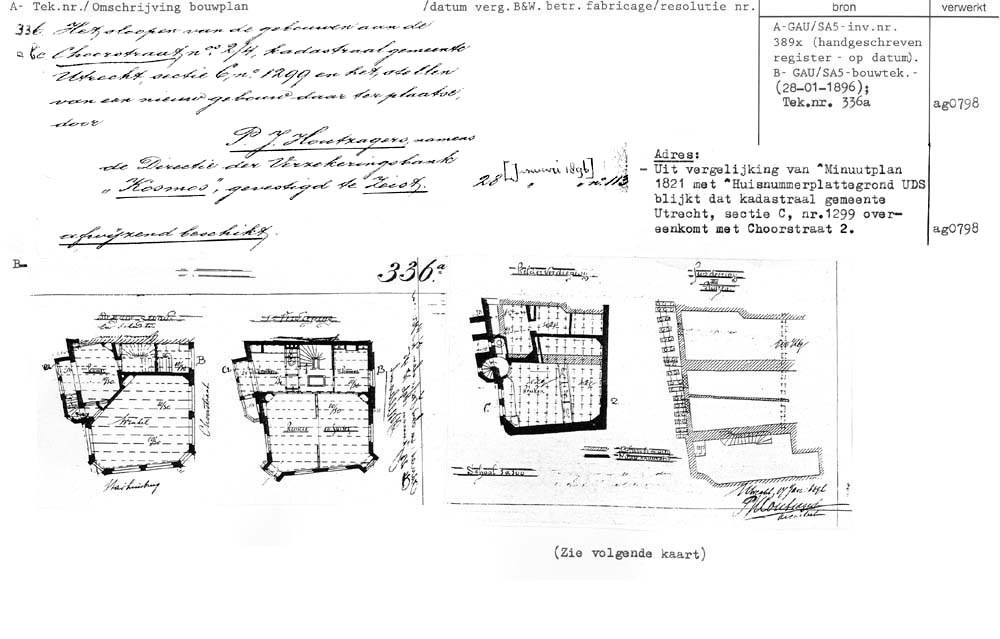 A- Tek.nr./Omschrijving bouwplan /datum verg.B&W. betr.fabricage/resolutie nr. bron verwerkt
336 Het sloopen van de gebouwen aan de
a&c Choorstraat, nos 2/4, kadastraal gemeente
Utrecht, sectie C, no 1299 en het stellen
van een nieuw gebouw daar ter plaatse,
door
P. J. Houtzagers, namens
de Directie der Verzekeringsbank
"Kosmos", gevestigd te Zeist.
28 [Januari 1896] " " no. 113
afwijzend beschikt.
A-GAU/SA5-inv.nr.
389x (handgeschreven
register - op datum).
B- GAU/SA5-bouwtek.-
(28-01-1896);
Tek.nr. 336a
ag0798
Adres:
- Uit vergelijking van ^Minuutplan
1821 met ^Huisnummerplattegrond UDS
blijkt dat kadastraal gemeente
Utrecht, sectie C, nr.1299 over-
eenkomt met Choorstraat 2.
ag0798
B-
336a
Winkel
B
Choorstraat
B
C
Utrecht, 17 Jan. 1896
P J Houtzagers
architect
(Zie volgende kaart)